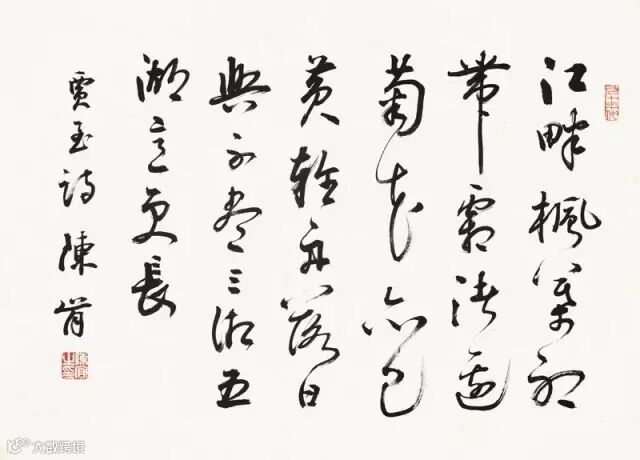 江畔楓葉初
帶霜渚邊
菊花亦已
黃輕舟落日
興不盡三湘五
湖意更長
賈至詩 陳
大数跨境